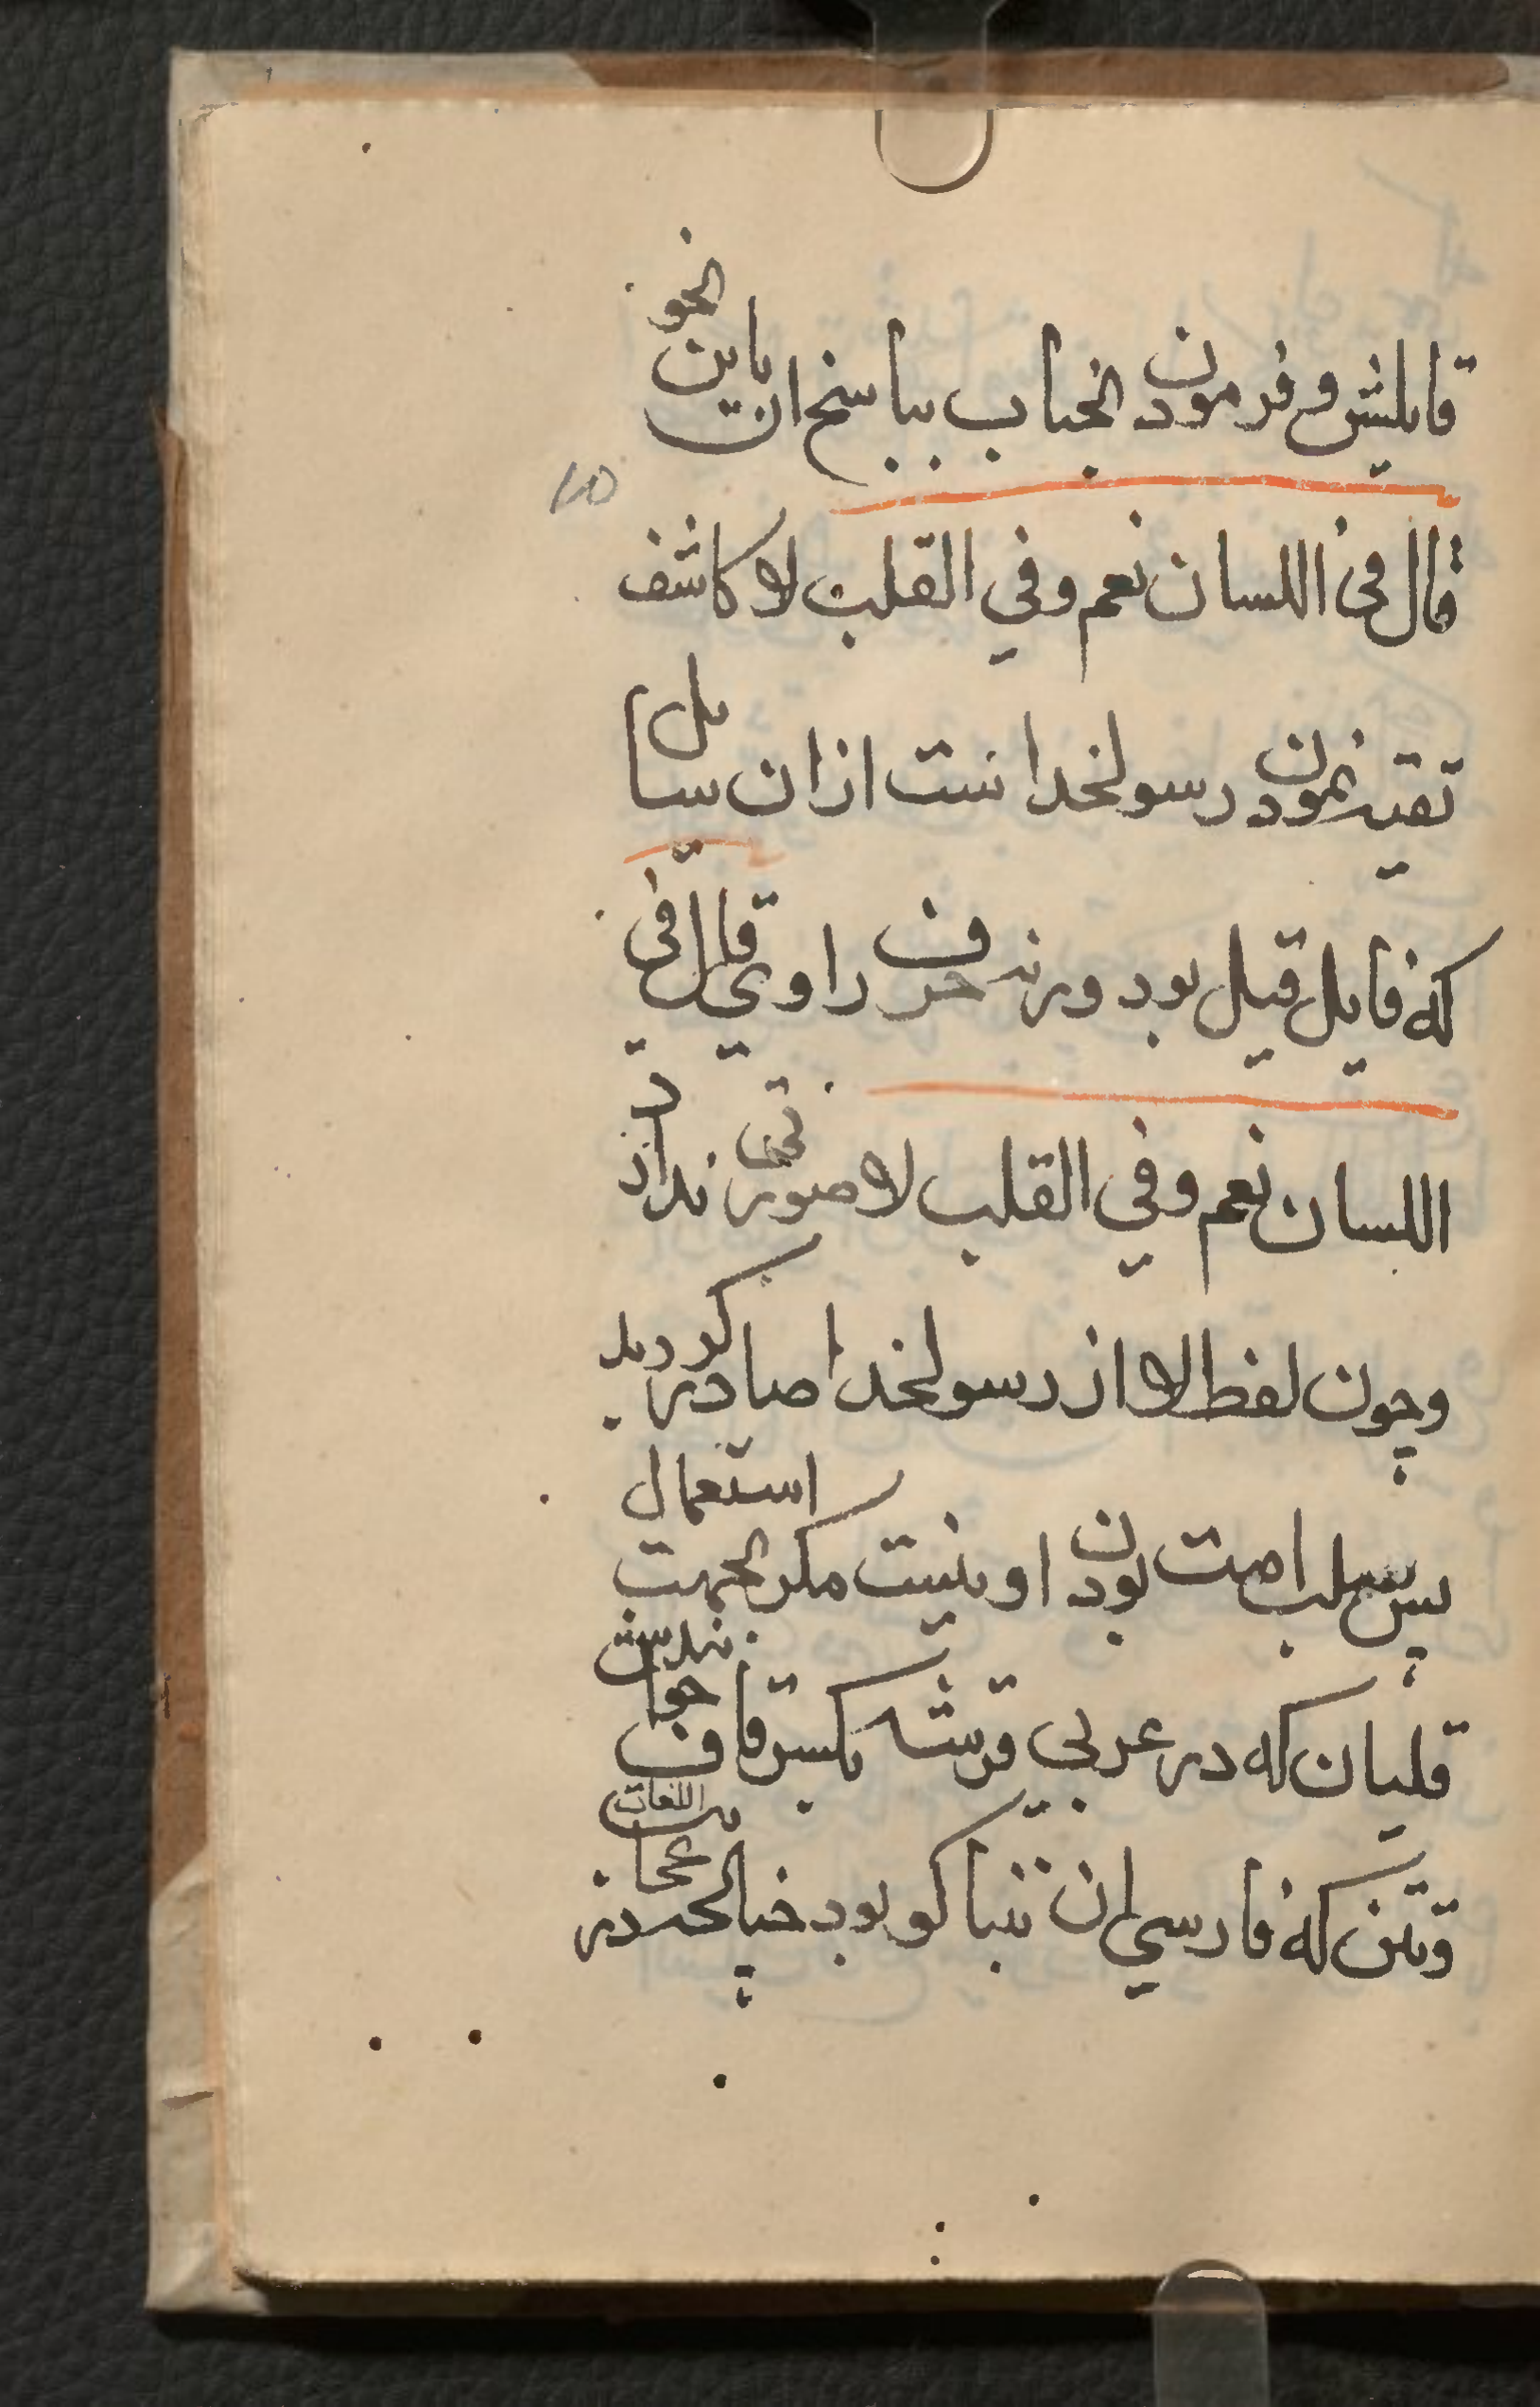 قایلش و فرمودن انجناب بپاسخ ان باین نحو
قال فی اللسان نعم وفي القلب لا کاشف
تقیه نمودن رسولخداست از ان سایل
که قایل قیل بود ورنه حرف راوي قال في
اللسان نعم وفي القلب لا صورتی ندارد
وچون لفظ لا از رسولخدا صادر کردید
پس سلب امت بودن او نیست مکر بجهت استعمال
قلیان که در عربي قرشه بکسر قاف خوانندش
وتتن که فارسي ان تنباکو بود چنانچه در